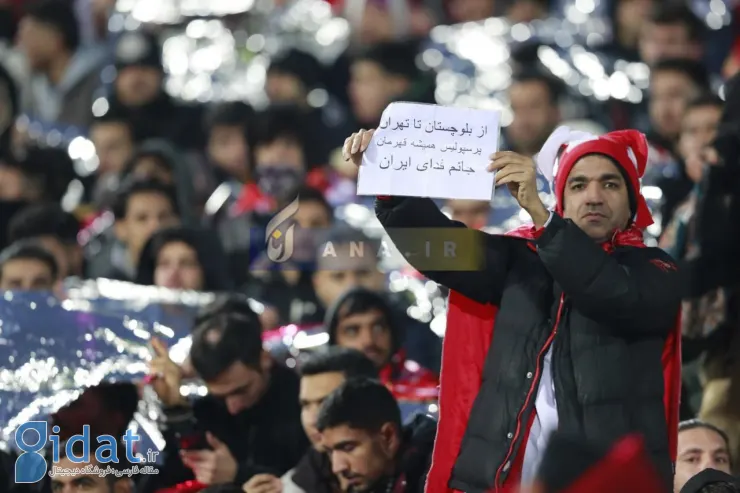 از بلوچستان تا تهران
پرسپولیس همیشه قهرمان
جانم فدای ایران
ANA.IR
gidat.ir
گجت نیوز